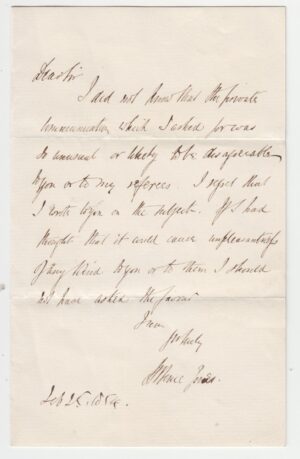 Dear Sir
I did not know that the private
communication which I asked for was
so unusual or likely to be disagreeable
to you or to my referees. I regret that
I wrote to you on the subject. If I had
thought that it could cause unpleasantness
of any kind to you or to them I should
not have asked the favour
I am
yrs truly
H Bence Jones.
Feb 25.